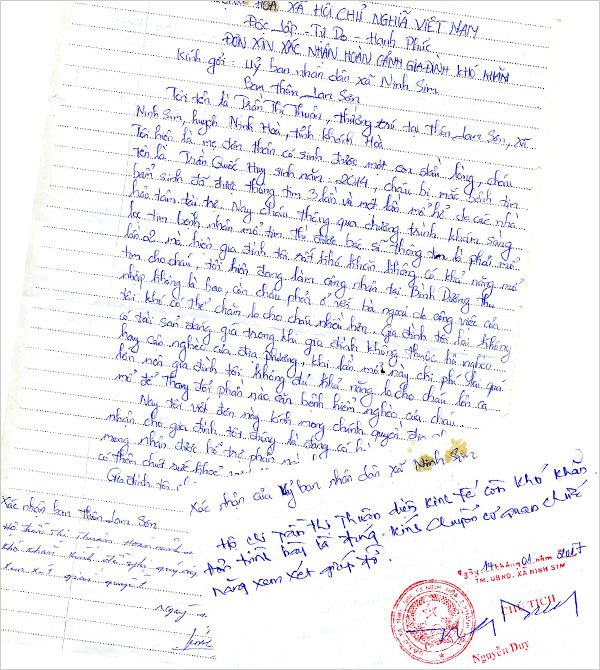 HÒA XÃ HỘI CHỦ NGHĨA VIỆT NAM
Độc lập - Tự Do - Hạnh Phúc
ĐƠN XIN XÁC NHẬN HOÀN CẢNH GIA ĐÌNH KHÓ KHĂN
Kính gởi: Uỷ ban nhân dân xã Ninh Sim
Ban thôn Lam Sơn
Tôi tên là Trần Thị Thuận, thường trú tại thôn Lam Sơn, xã
Ninh Sim, huyện Ninh Hoà, tỉnh Khánh Hoà
Tôi hiện là mẹ đơn thân có sinh được một con đầu lòng, cháu
tên là Trần Quốc Huy sinh năm: 2014, cháu bị mắc bệnh tim
bẩm sinh đã được thông tim 3 lần và một lần mổ hở do các nhà
hảo tâm tài trợ. Nay cháu thông qua chương trình khám sàng
lọc tim bệnh nhân mổ tim thì được bác sĩ thông tim là phải mổ
lần 02 mà hiện gia đình tôi rất khó khăn không có khả năng mổ
tim cho cháu, tôi hiện đang làm công nhân tại Bình Dương thu
nhập không là bao, còn cháu phải ở với bà ngoại do công việc của
tôi khó có thể chăm lo cho cháu nhiều hơn. Gia đình tôi lại không
có tài sản đáng giá trong khi gia đình không thuộc hộ nghèo
hay cận nghèo của địa phương, khi lần mổ này chi phí lại quá
lớn nên gia đình tôi không đủ khả năng lo cho cháu lên ca
mổ để thay đổi phần nào căn bệnh hiểm nghèo của cháu.
Nay tôi viết đơn này kính mong chính quyền
nhận cho gia đình tôi đúng là đang có h
mong nhận được hỗ trợ phần
có thêm chút sức khoẻ
Gia đình tôi
Xác nhận của Uỷ ban nhân dân xã Ninh Sim
Hộ chị Trần Thị Thuận diện kinh tế còn khó khăn
đơn trình bày là đúng. Kính chuyển cơ quan chức
năng xem xét giúp đỡ.
Xác nhận ban thôn Lam Sơn
Hộ Trần Thị Thuận hoàn cảnh
khó khăn
xem xét giải quyết
Ngày 14 tháng 01 năm 2017
TM. UBND. XÃ NINH SIM
CHỦ TỊCH
Nguyễn Duy